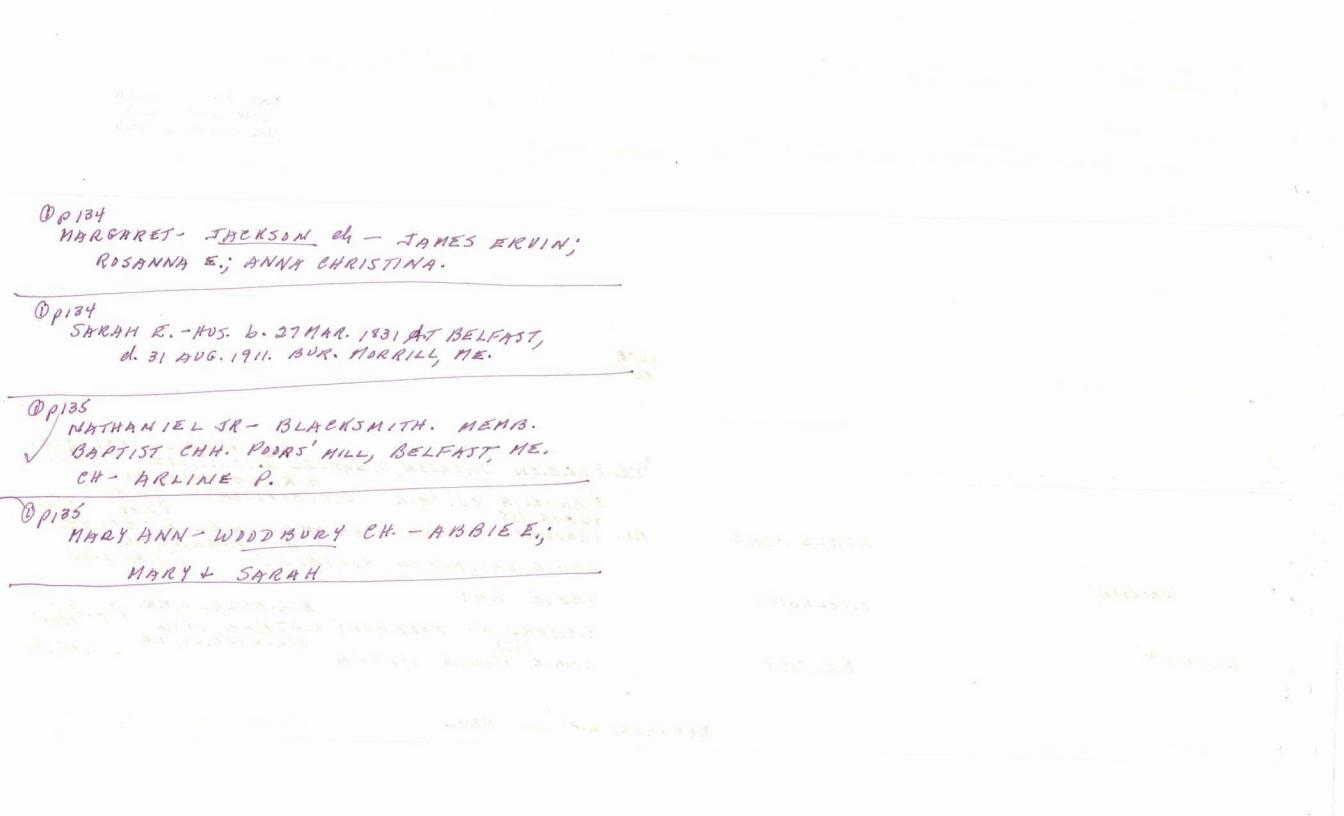 ① p134
MARGARET- JACKSON ch - JAMES ERVIN;
ROSANNA E.; ANNA CHRISTINA.
① p134
SARAH E. -HUS. b. 27 MAR. 1831 AT BELFAST,
d. 31 AUG. 1911. BUR. MORRILL, ME.
① p135
NATHANIEL JR- BLACKSMITH. MEMB.
BAPTIST CHH. POORS' MILL, BELFAST, ME.
CH- ARLINE P.
① p135
MARY ANN- WOODBURY CH. - ABBIE E.;
MARY & SARAH